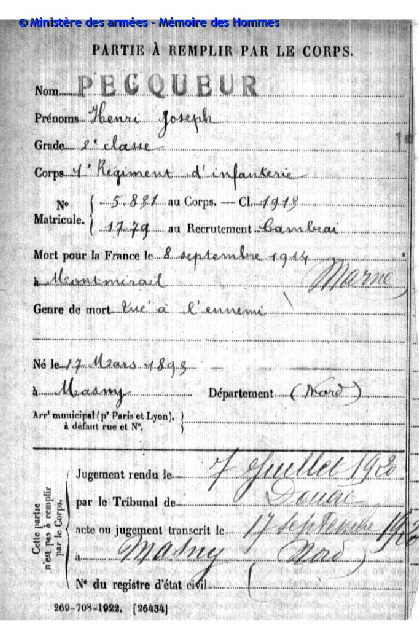 © Ministère des armées - Mémoire des Hommes
PARTIE À REMPLIR PAR LE CORPS.
Nom PECQUEUR
Prénoms Henri Joseph
Grade 2e classe
Corps 1er Régiment d'infanterie
N° Matricule. { 5.831 au Corps. — Cl. 1913
1779 au Recrutement Cambrai
Mort pour la France le 8 septembre 1914
à Montmirail (Marne)
Genre de mort tué à l'ennemi
Né le 17 Mars 1893
à Masny Département (Nord)
Arrt municipal (pr Paris et Lyon), à défaut rue et N°. }
Cette partie n'est pas à remplir par le Corps.
Jugement rendu le 7 Juillet 1920
par le Tribunal de Douai
acte ou jugement transcrit le 17 septembre 1920
à Masny (Nord)
N° du registre d'état civil
269-708-1922. [26434]